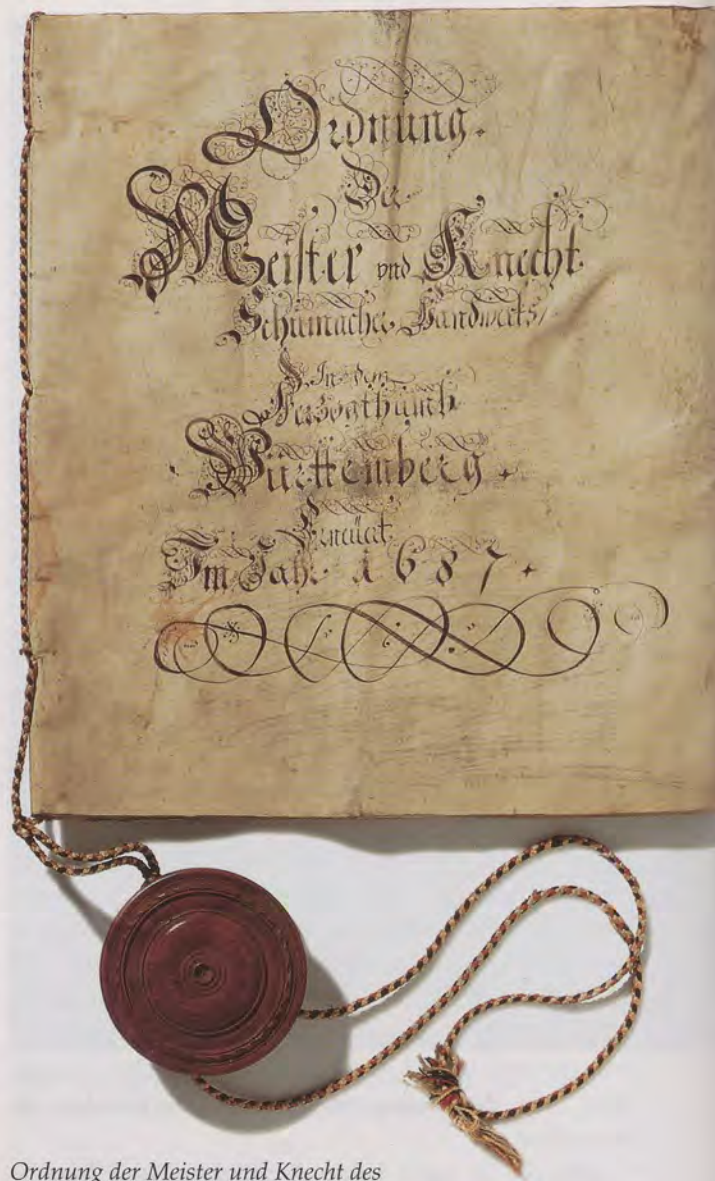 Ordnung.
Der
Meister vnd Knecht
Schumacher Handwerks,
In dem
Herzogthumb
Württemberg.
Erneüert
Im Jahr 1687.
Ordnung der Meister und Knecht des